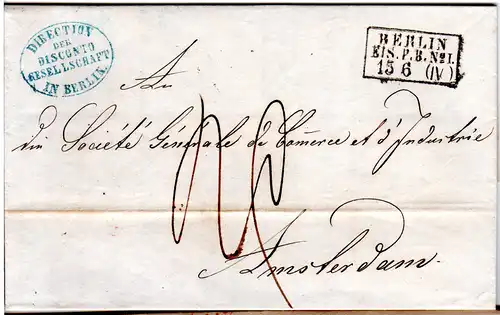 DIRECTION
DER
DISCONTO
GESELLSCHAFT
IN BERLIN.
BERLIN
EIS. P. B. No I.
15 6 (IV)
An
die Société Générale de Commerce et d'Industrie
Amsterdam.